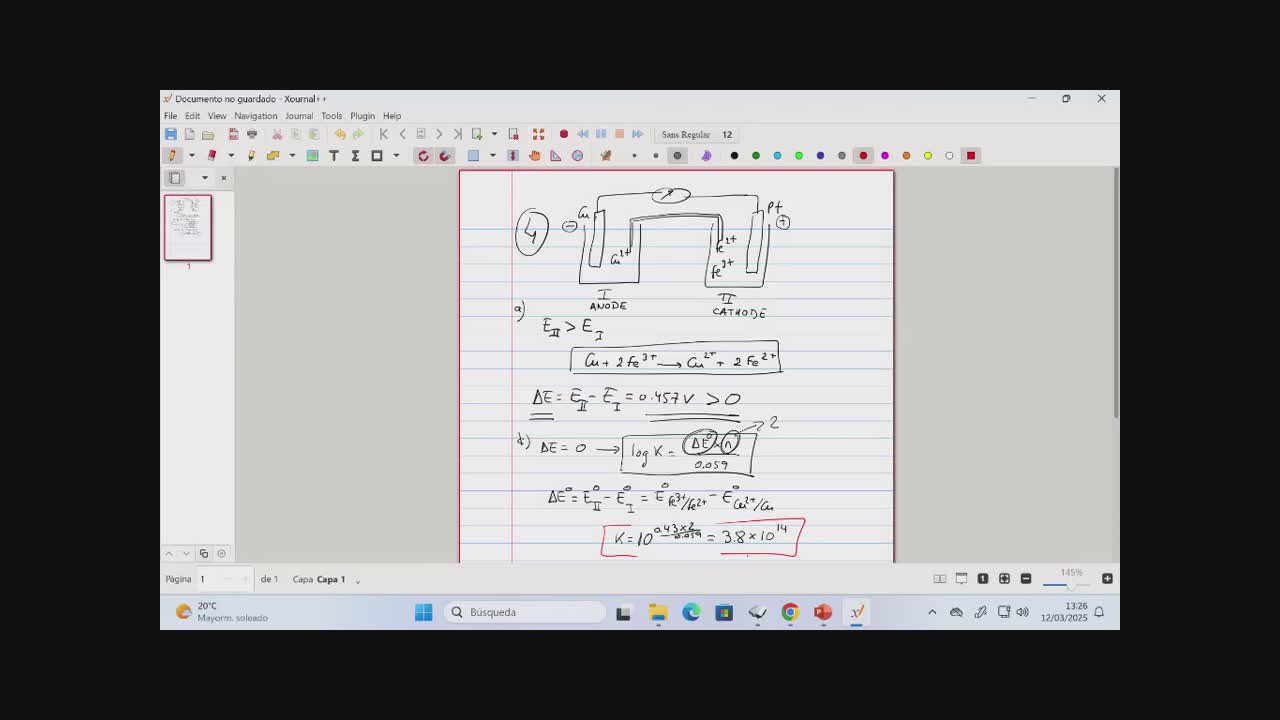 Documento no guardado - Xournal++
File Edit View Navigation Journal Tools Plugin Help
Sans Regular 12
1
4
Cu
Pt
Cu²⁺
Fe²⁺
Fe³⁺
I
ANODE
II
CATHODE
a)
E_II > E_I
Cu + 2Fe³⁺ → Cu²⁺ + 2Fe²⁺
ΔE = E_II - E_I = 0.457 V > 0
b) ΔE = 0 → log K = ΔE° × n / 0.059
2
ΔE° = E°_II - E°_I = E°_Fe³⁺/Fe²⁺ - E°_Cu²⁺/Cu
K = 10^(0.43×2/0.059) = 3.8 × 10¹⁴
Página 1 de 1 Capa Capa 1
145%
20°C
Mayorm. soleado
Búsqueda
13:26
12/03/2025